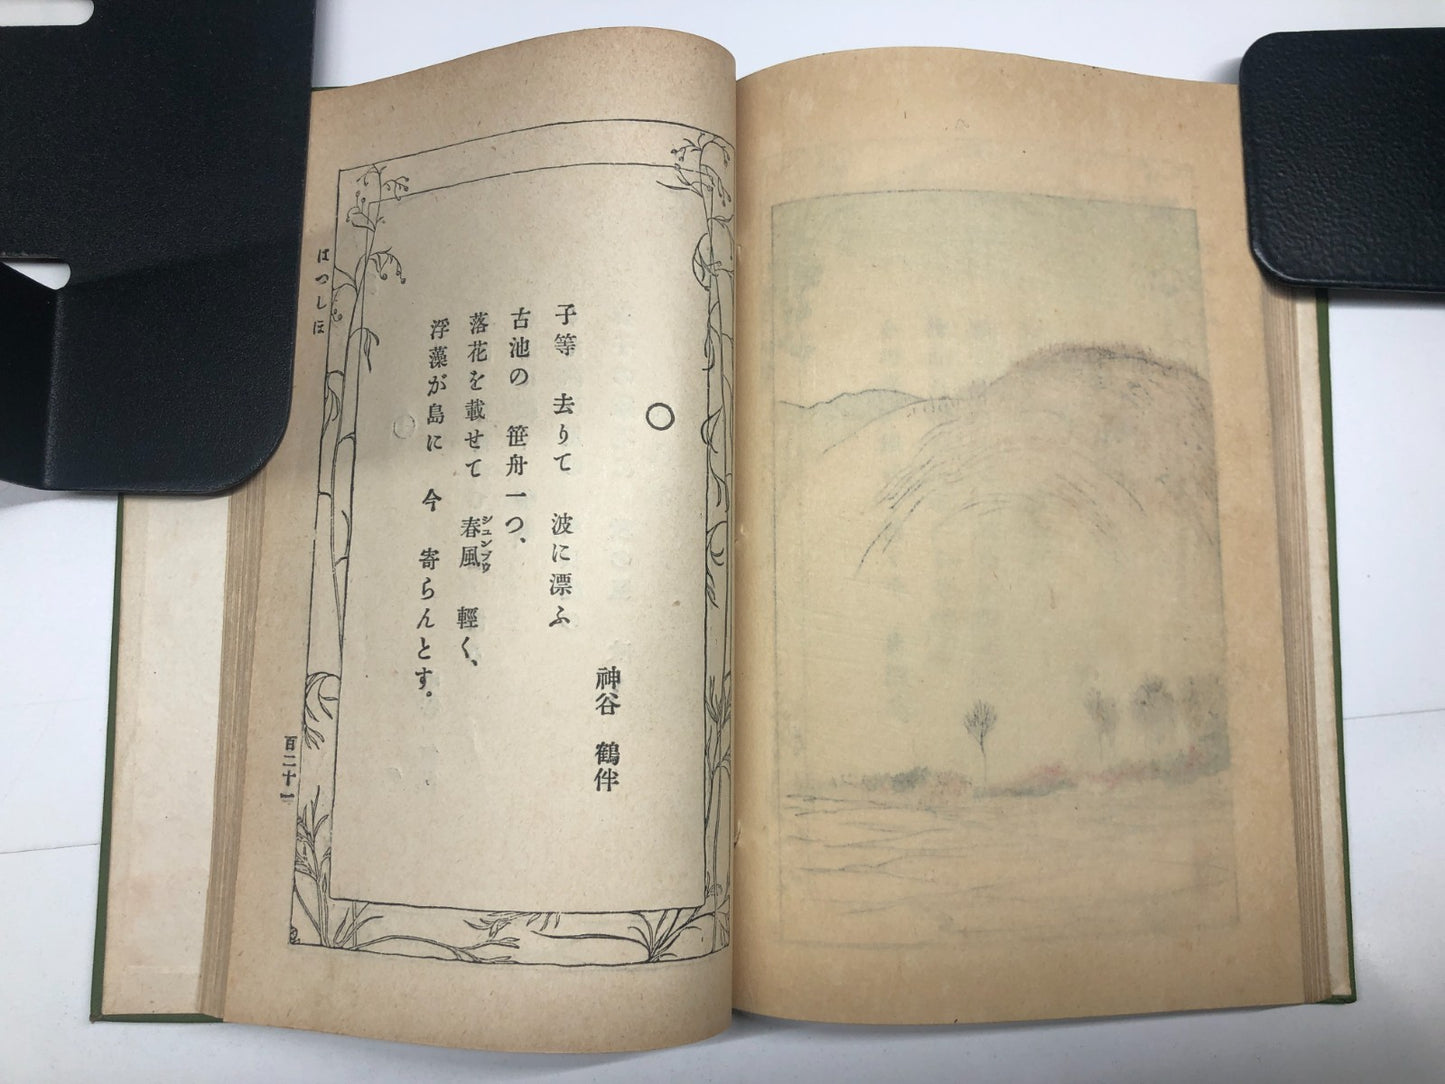 ○
神谷 鶴伴
子等 去りて 波に漂ふ
古池の 笹舟一つ、
落花を載せて 春風 輕く、
シュンプウ
浮藻が島に 今 寄らんとす。
はつしほ
百二十一